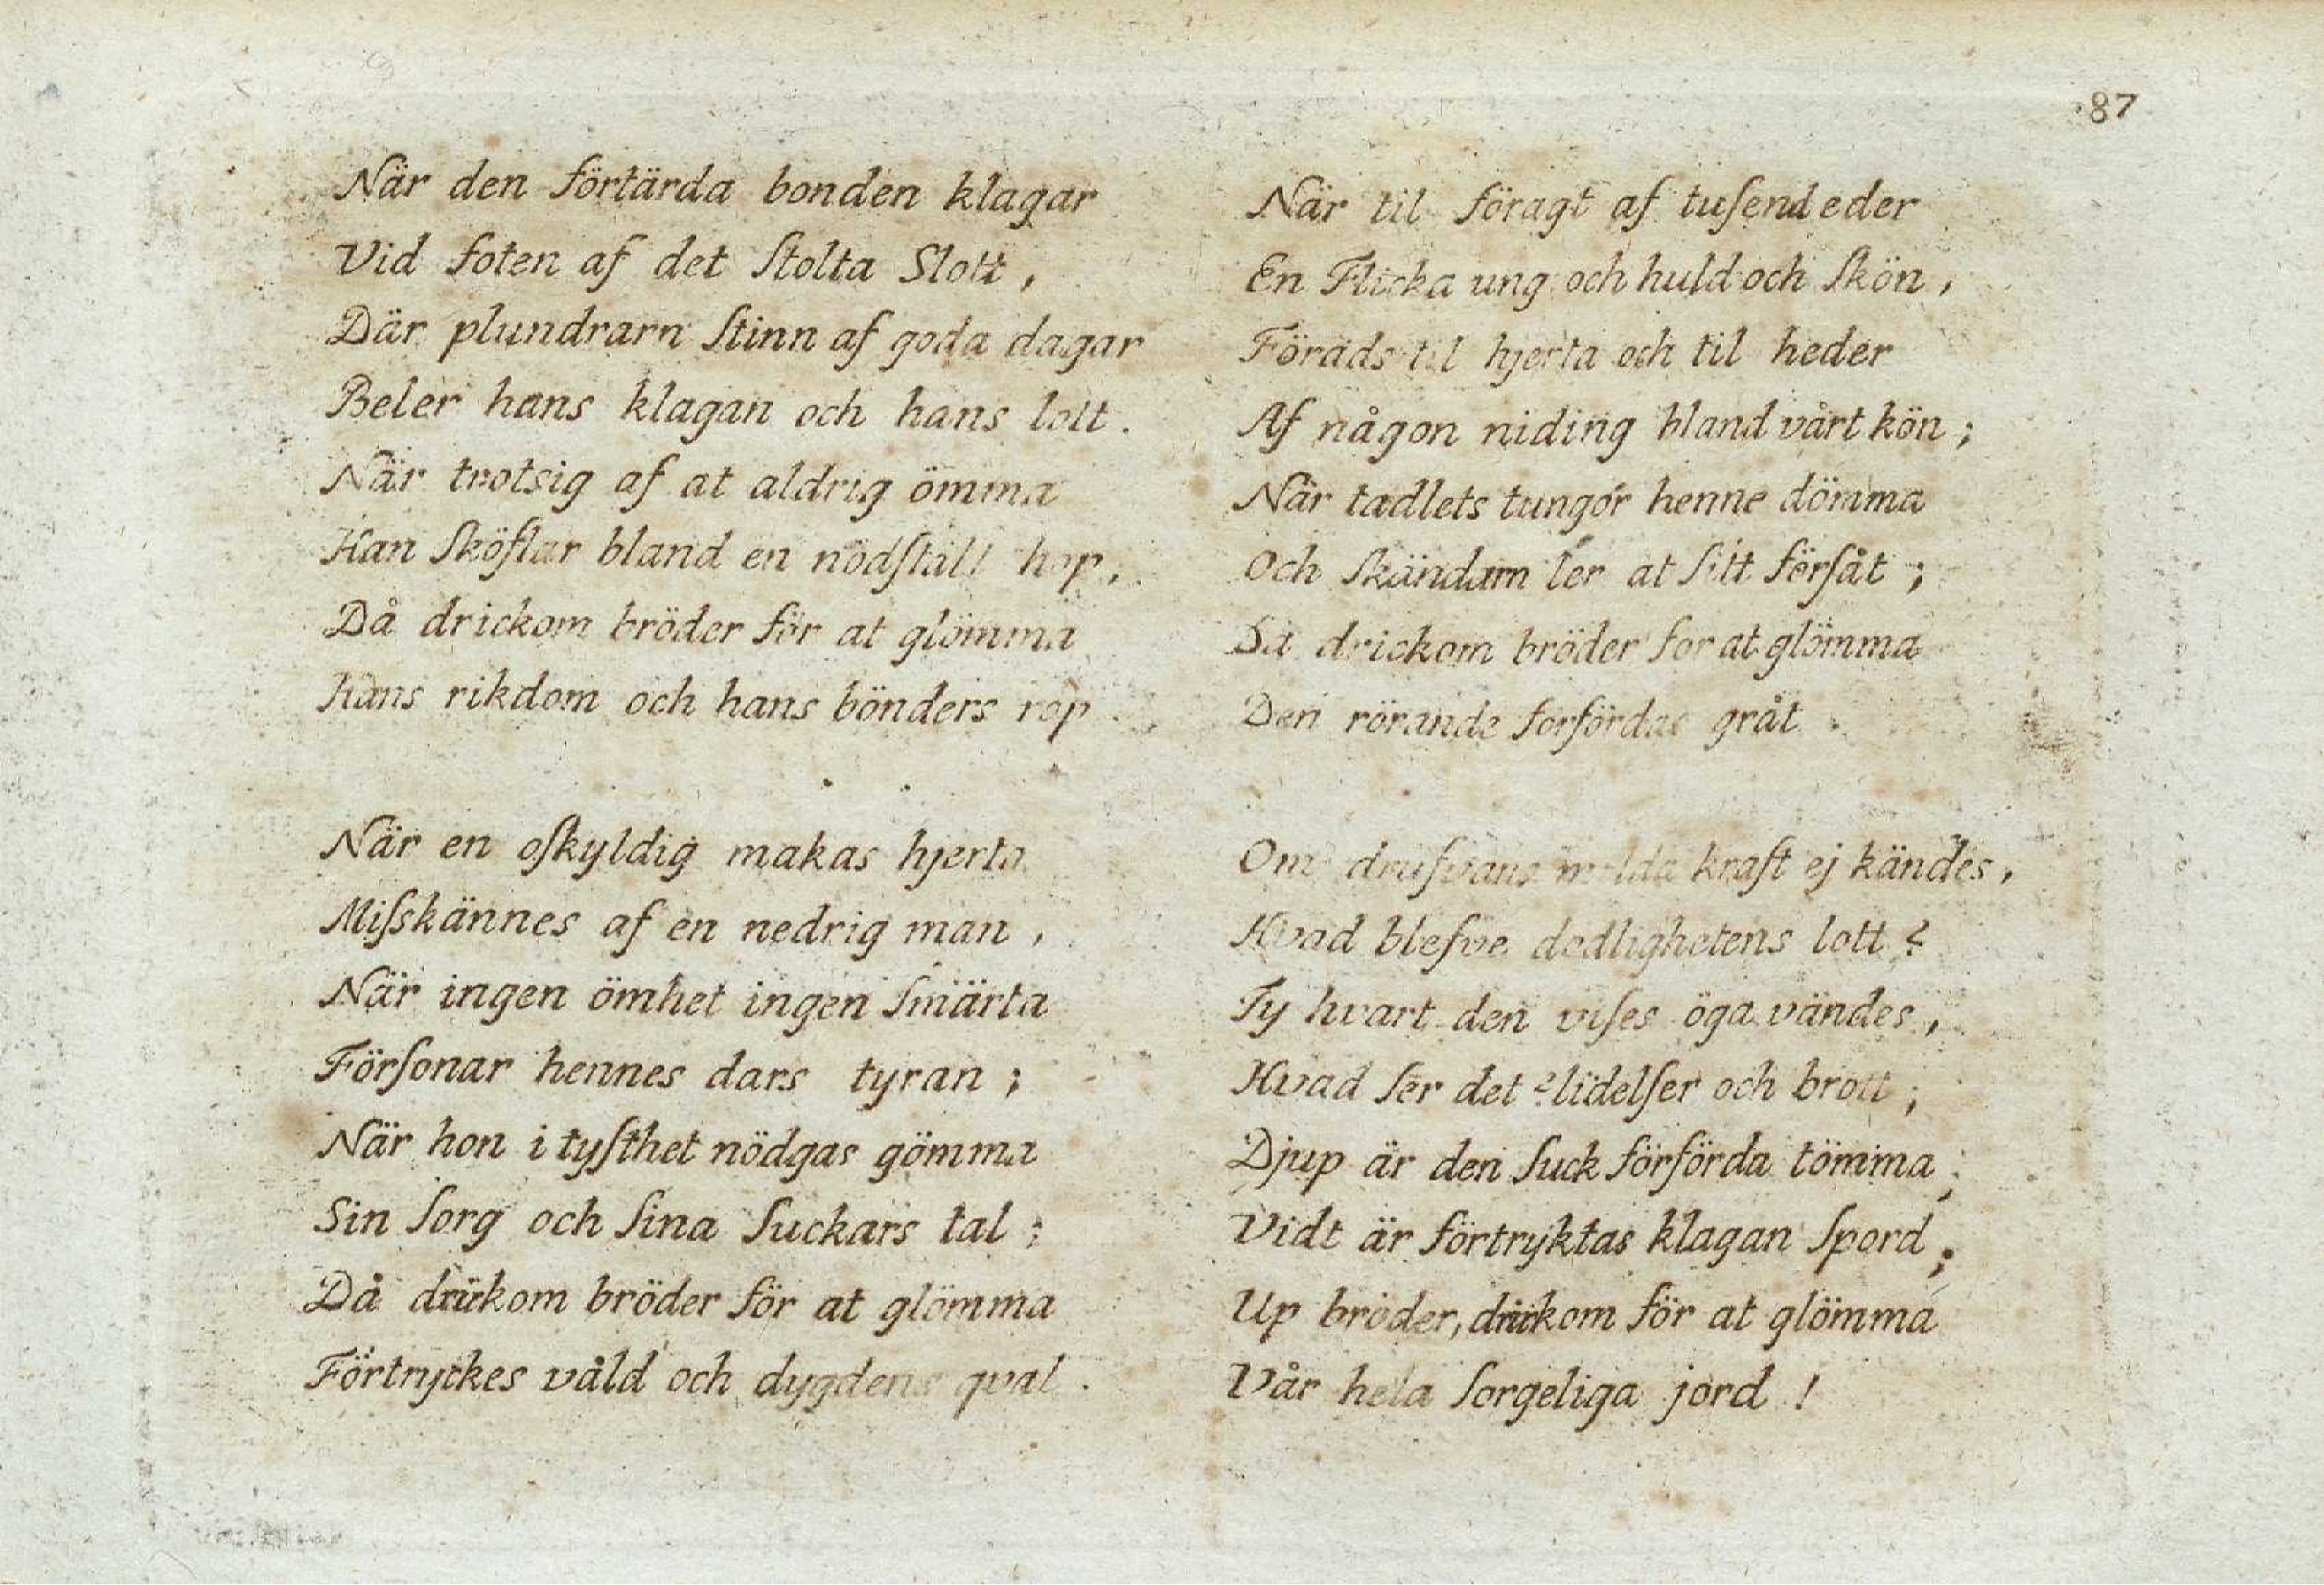 87
När den förtärda bonden klagar
Vid foten af det ſtolta Slott,
Där plundrarn ſtinn af goda dagar
Beler hans klagan och hans lott.
När trotsig af at aldrig ömma
Han ſköflar bland en nödſtält hop,
Då drickom bröder för at glömma
Hans rikdom och hans bönders rop.
När en oſkyldig makas hjerta
Miſskännes af en nedrig man,
När ingen ömhet ingen ſmärta
Förſonar hennes dars tyran;
När hon i tyſthet nödgas gömma
Sin ſorg och ſina ſuckars tal;
Då drickom bröder för at glömma
Förtryckes våld och dygdens qval.
När til föragt af tuſend eder
En Flicka ung och huld och ſkön,
Föräds til hjerta och til heder
Af någon niding bland vårt kön;
När tadlets tungor henne dömma
Och ſkändarn ler at ſitt förſåt;
Då drickom bröder för at glömma
Den rörande förfördas gråt.
Om drufvans milda kraft ej kändes,
Hvad blefve dödlighetens lott?
Ty hvart den viſes öga vändes,
Hvad ſer det? lidelſer och brott;
Djup är den ſuck förförda tömma;
Vidt är förtryktas klagan ſpord;
Up bröder, drickom för at glömma
Vår hela ſorgeliga jord!